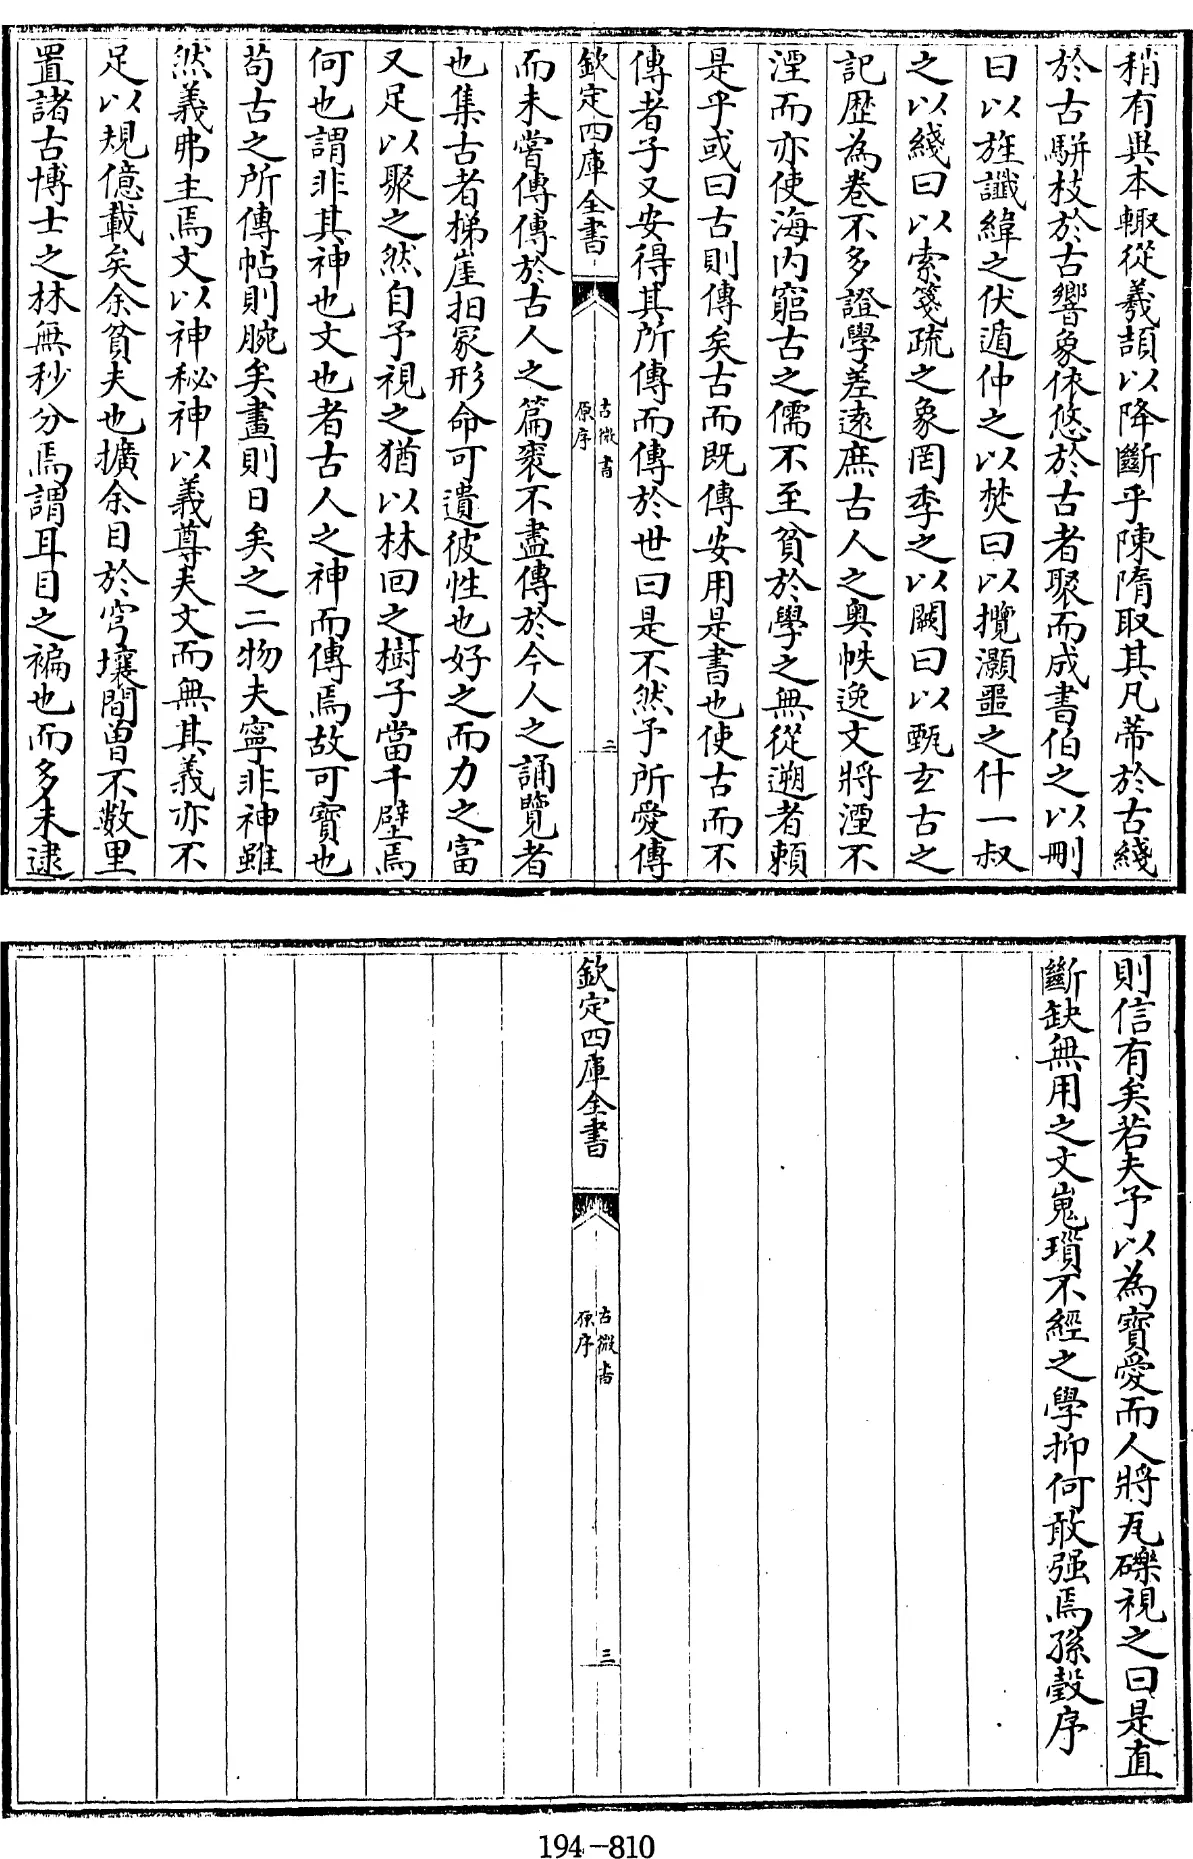 稍有與本輙從羲頡以降斷乎陳隋取其凡蒂於古綫
於古駢枝於古響象依悠於古者聚而成書伯之以刪
曰以旌讖緯之伏遁仲之以焚曰以攬灝噩之什一叔
之以綫曰以索箋疏之象罔季之以闕曰以甄玄古之
記歴為卷不多證學差遠庶古人之奥帙逸文將湮不
湮而亦使海内窮古之儒不至貧於學之無從遡者頼
是乎或曰古則傳矣古而既傳安用是書也使古而不
傳者子又安得其所傳而傳於世曰是不然予所愛傳
欽定四庫全書
古微書
原序
二
而未嘗傳傳於古人之篇褎不盡傳於今人之誦覽者
也集古者梯崖抇冢形命可遺彼性也好之而力之富
又足以聚之然自予視之猶以林回之樹子當千壁焉
何也謂非其神也文也者古人之神而傳焉故可寳也
苟古之所傳帖則腕矣畫則日矣之二物夫寧非神雖
然義弗主焉文以神秘神以義尊夫文而無其義亦不
足以規億載矣余貧夫也擴余目於穹壤間曽不數里
置諸古博士之林無秒分焉謂耳目之褊也而多未逮
則信有矣若夫予以為寳愛而人將瓦礫視之曰是直
斷缺無用之文嵬瑣不經之學抑何敢强焉孫瑴序
欽定四庫全書
古微書
原序
三
194-810